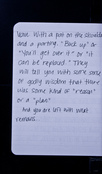 Now. With a pat on the shoulder
and a parting, "Buck up" or
"You'll get over it" or "it
can be replaced." They
will tell you with some sense
of godly wisdom that there
was some kind of "reason"
or a "plan"
And you are left with what
remains...